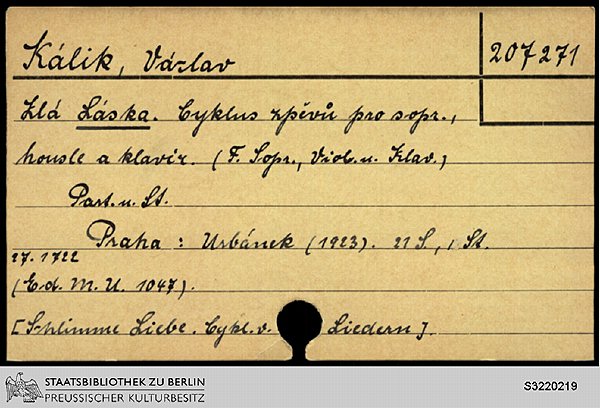 Kálik, Václav
207271
Zlá Láska. Cyklus zpěvů pro sopr.,
housle a klavír. (F. Sopr., Viol. u. Klav.)
Part. u. St.
Praha : Urbánek (1923). 21 S., 1 St.
27. 1722
(Ed. M. U. 1047).
[Schlimme Liebe. Cykl. v. Liedern].
STAATSBIBLIOTHEK ZU BERLIN
PREUSSISCHER KULTURBESITZ
S3220219